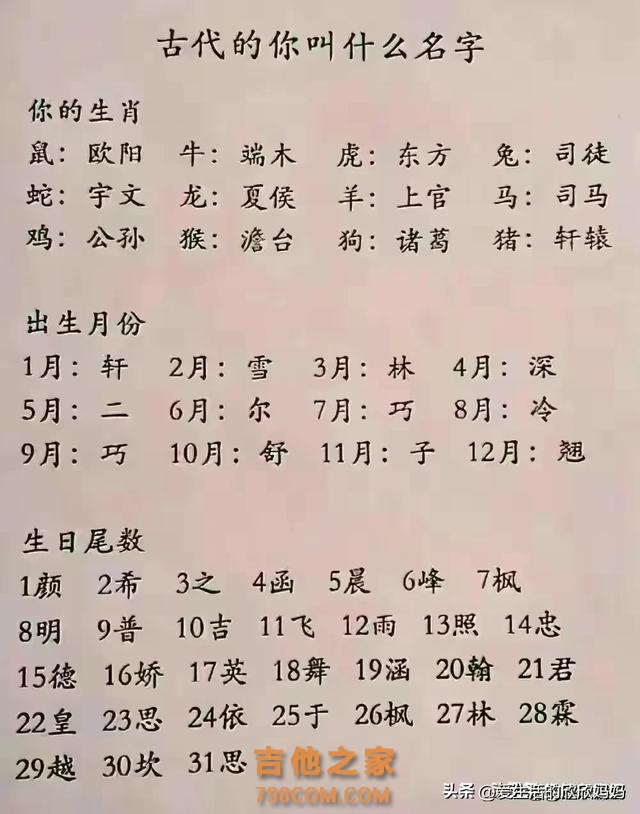 古代的你叫什么名字
你的生肖
鼠：欧阳 牛：端木 虎：东方 兔：司徒
蛇：宇文 龙：夏侯 羊：上官 马：司马
鸡：公孙 猴：澹台 狗：诸葛 猪：轩辕
出生月份
1月：轩 2月：雪 3月：林 4月：深
5月：二 6月：尔 7月：巧 8月：冷
9月：巧 10月：舒 11月：子 12月：翘
生日尾数
1颜 2希 3之 4函 5晨 6峰 7枫
8明 9普 10吉 11飞 12雨 13照 14忠
15德 16娇 17英 18舞 19涵 20翰 21君
22皇 23思 24依 25于 26枫 27林 28霖
29越 30坎 31思
吉他之家
798COM.COM
头条 @爱生活的欣欣妈妈